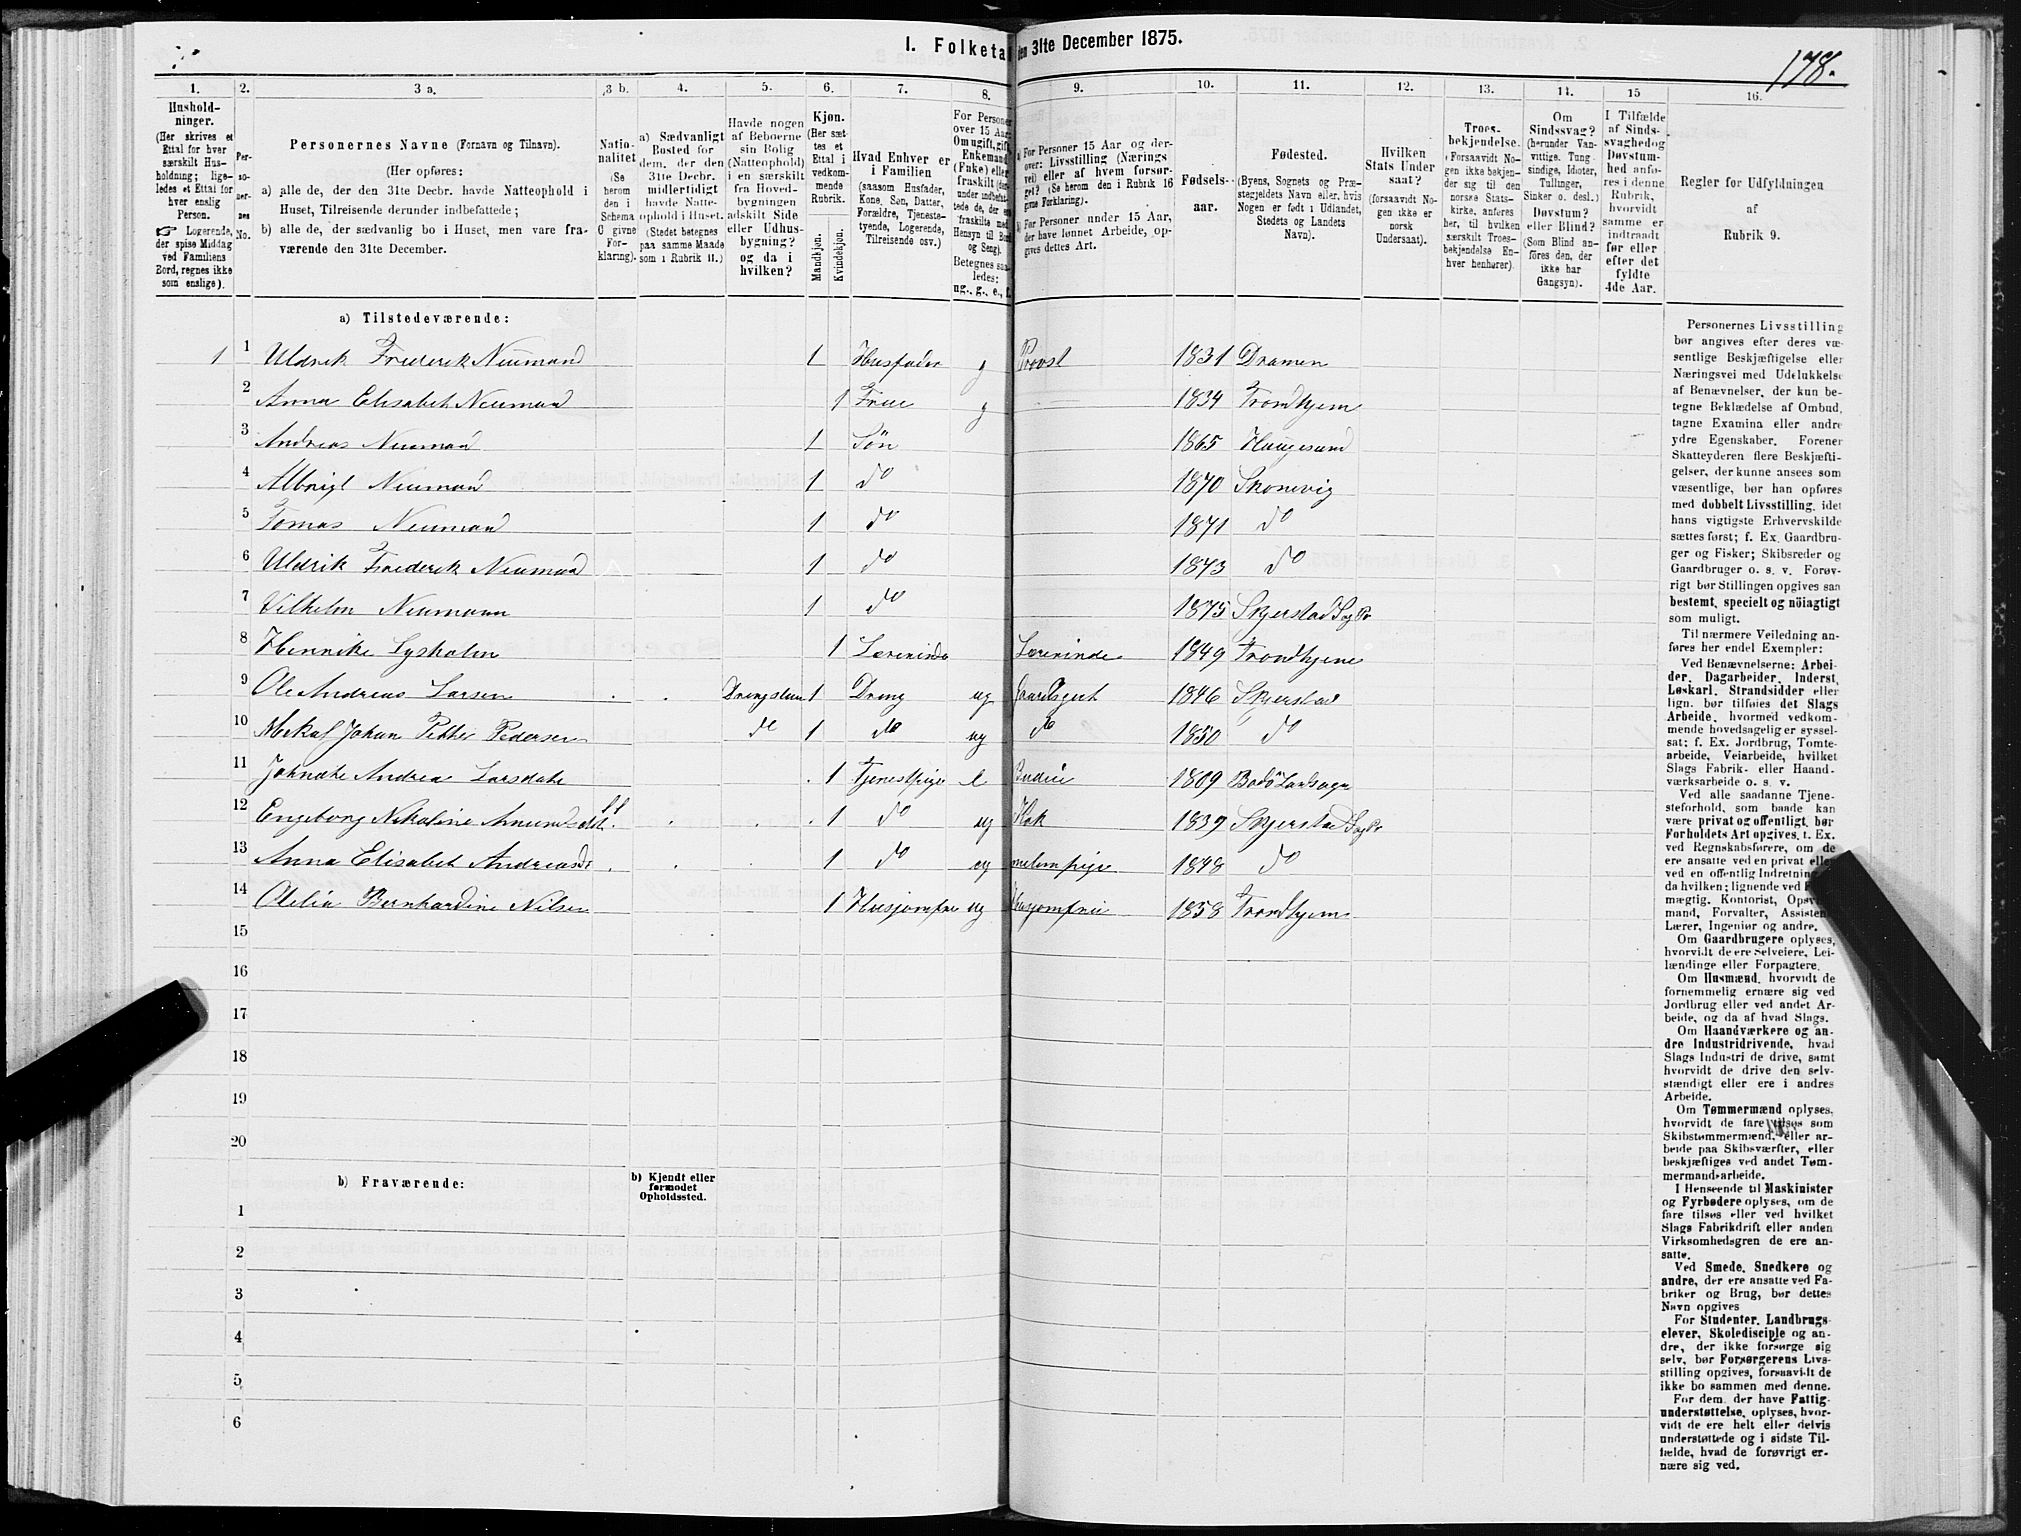 I. Folketæ
den 31te December 1875.
178.
1.
2.
3 a.
3 b.
4.
5.
6.
7.
8.
9.
10.
11.
12.
13.
14.
15
16.
Hushold-
ninger.
(Her skrives et
Ettal for hver
særskilt Hus-
holdning; lige-
ledes et Ettal for
hver enslig
Person.
☞ Logerende,
der spise Middag
ved Familiens
Bord, regnes ikke
som enslige).
Per-
so-
ner-
nes
No.
Personernes Navne (Fornavn og Tilnavn).
(Her opføres:
a) alle de, der den 31te Decbr. havde Natteophold i
Huset, Tilreisende derunder indbefattede;
b) alle de, der sædvanlig bo i Huset, men vare fra-
værende den 31te December.
Natio-
nalitet
(Se
herom
den i
Schema
C givne
For-
klaring).
a) Sædvanligt
Bosted for
dem, der den
31te Decbr.
midlertidigt
havde Natte-
ophold i Huset.
(Stedet betegnes
paa samme Maade
som i Rubrik 11.)
Havde nogen
af Beboerne
sin Bolig
(Natteophold)
i en særskilt
fra Hoved-
bygningen
adskilt Side
eller Udhus-
bygning?
og da i
hvilken?
Kjøn.
(Her sæt-
tes et
Ettal i
vedkom-
mende
Rubrik.
Mandkjøn.
Kvindekjøn.
Hvad Enhver er
i Familien
(saasom Husfader,
Kone, Søn, Datter,
Forældre, Tjeneste-
tyende, Logerende,
Tilreisende osv.)
For Personer
over 15 Aar:
Om ugift, gift,
Enkemand
(Enke) eller
fraskilt
og Seng).
Betegnes saa-
ledes:
ug., g., e., f.
a) For Personer 15 Aar og der-
over: Livsstilling (Nærings
vei) eller af hvem forsør-
get? (Se herom den i Rubrik 16
givne Forklaring).
b) For Personer under 15 Aar,
der have lønnet Arbeide, op-
gives dettes Art.
Fødsels-
aar.
Fødested.
(Byens, Sognets og Præ-
stegjeldets Navn eller, hvis
Nogen er født i Udlandet,
Stedets og Landets
Navn).
Hvilken
Stats Under
saat?
(forsaavidt No-
gen ikke er
norsk
Undersaat).
Troes-
bekjendelse.
(Forsaavidt No-
gen ikke bekjen-
der sig til den
norske Stats-
kirke, anføres
her, til hvilken
særskilt Troes-
bekjendelse En-
hver henhører).
Om
Sindssvag?
(herunder Van-
vittige, Tung-
sindige, Idioter,
Tullinger,
Sinker o. desl.)
Døvstum?
eller Blind?
(Som Blind an-
føres den, der
ikke har
Gangsyn).
I Tilfælde
af Sinds-
svaghed og
Døvstum-
hed anfø-
res i denne
Rubrik,
hvorvidt
samme er
indtraadt
før eller
efter det
fyldte
4de Aar.
Regler for Udfyldningen
af
Rubrik 9.
a) Tilstedeværende:
1 1 Uldrik Frederik Neumand 1 Husfader g Provst 1831 Dramen
2 Anna Elisabet Neumand 1 Frue g 1834 Trondhjem
3 Andreas Neumand 1 Søn 1865 Haugesund
4 Albrigt Neumand 1 do 1870 Skonevig
5 Tomas Neumand 1 do 1871 do
6 Uldrik Frederik Neumand 1 do 1873 do
7 Vilhelm Neumann 1 do 1875 Skjerstad S og Pr
8 Hennike Lysholm 1 Lærerinde Lærerinde 1849 Trondhjem
9 Ole Andreas Larsen 1 Dreng ug Gaardsgut 1846 Skjerstad
10 Mikal Johan Petter Pedersen do 1 do ug do 1850 do
11 Johnæte Andrea Larsdatr 1 Tjenestpige e Budeie 1809 Bodø Landsogn
12 Engeborg Nikoline Amundsdtr 1 do ug Kok 1839 Skjerstad S og Pr
13 Anna Elisabet Andreasdr 1 do ug 1848 do
14 Olelia Bernhardine Nilsen 1 Husjomfru ug Husjomfrue 1858 Trondhjem
15
16
17
18
19
20
b) Fraværende:
b) Kjendt eller
formodet
Opholdssted.
1
2
3
4
5
6
Personernes Livsstilling
bør angives efter deres væ-
sentlige Beskjæftigelse eller
Næringsvei med Udelukkelse
af Benævnelser, der kun be-
tegne Beklædelse af Ombud,
tagne Examina eller andre
ydre Egenskaber. Forener
Skatteyderen flere Beskjæfti-
gelser, der kunne ansees som
væsentlige, bør han opføres
med dobbelt Livsstilling, idet
hans vigtigste Erhvervskilde
sættes først; f. Ex. Gaardbru-
ger og Fisker; Skibsreder og
Gaardbruger o. s. v. Forøv-
rigt bør Stillingen opgives saa
bestemt, specielt og nöiagtigt
som muligt.
Til nærmere Veiledning an-
føres her endel Exempler:
Ved Benævnelserne: Arbei-
der, Dagarbeider, Inderst,
Løskarl, Strandsidder eller
lign. bør tilføies det Slags
Arbeide, hvormed vedkom-
mende hovedsagelig er syssel-
sat; f. Ex. Jordbrug, Tomte-
arbeide, Veiarbeide, hvilket
Slags Fabrik- eller Haand-
værksarbeide o. s. v.
Ved alle saadanne Tjene-
steforhold, som baade kan
være privat og offentligt, bør
Forholdets Art opgives, t. Ex.
ved Regnskabsførere, om de
ere ansatte ved en privat eller
ved en offentlig Indretning
da hvilken; lignende ved
mægtig, Kontorist, Opsyns-
mand, Forvalter, Assistent,
Lærer, Ingeniør og andre.
Om Gaardbrugere oplyses,
hvorvidt de ere Selveiere, Lei-
lændinge eller Forpagtere.
Om Husmænd, hvorvidt de
fornemmelig ernære sig ved
Jordbrug eller ved andet Ar-
beide, og da af hvad Slags.
Om Haandværkere og an-
dre Industridrivende, hvad
Slags Industri de drive, samt
hvorvidt de drive den selv-
stændigt eller ere i andres
Arbeide.
Om Tømmermænd oplyses,
hvorvidt de fare tilsøs som
Skibstømmermænd, eller ar-
beide paa Skibsværfter, eller
beskjæftiges ved andet Tøm-
mermandsarbeide.
I Henseende til Maskinister
og Fyrbødere oplyses, om de
fare tilsøs eller ved hvilket
Slags Fabrikdrift eller anden
Virksomhedsgren de ere an-
satte.
Ved Smede, Snedkere og
andre, der ere ansatte ved Fa-
briker og Brug, bør dettes
Navn opgives
For Studenter, Landbrugs-
elever, Skoledisciple og an-
dre, der ikke forsørge sig
selv, bør Forsørgerens Livs-
stilling opgives, forsaavidt de
ikke bo sammen med denne.
For dem, der have Fattig-
understøttelse, oplyses, hvor-
vidt de ere helt eller delvis
understøttede og i sidste Til-
fælde, hvad de forøvrigt er-
nære sig ved.